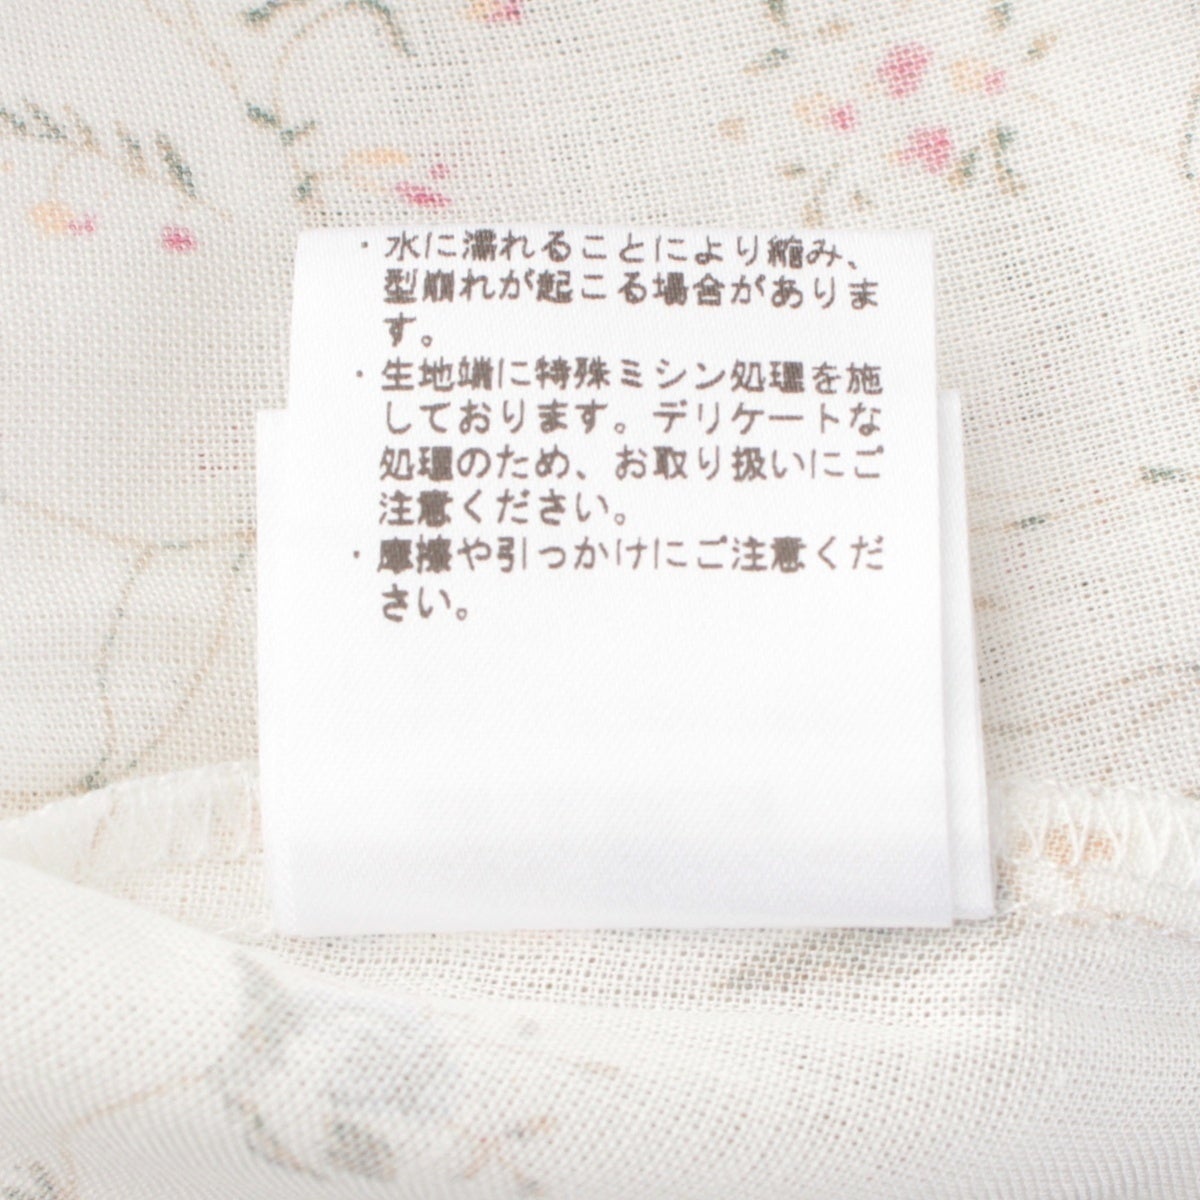 ・水に濡れることにより縮み、
型崩れが起こる場合がありま
す。
・生地端に特殊ミシン処理を施
しております。デリケートな
処理のため、お取り扱いにご
注意ください。
・摩擦や引っかけにご注意くだ
さい。